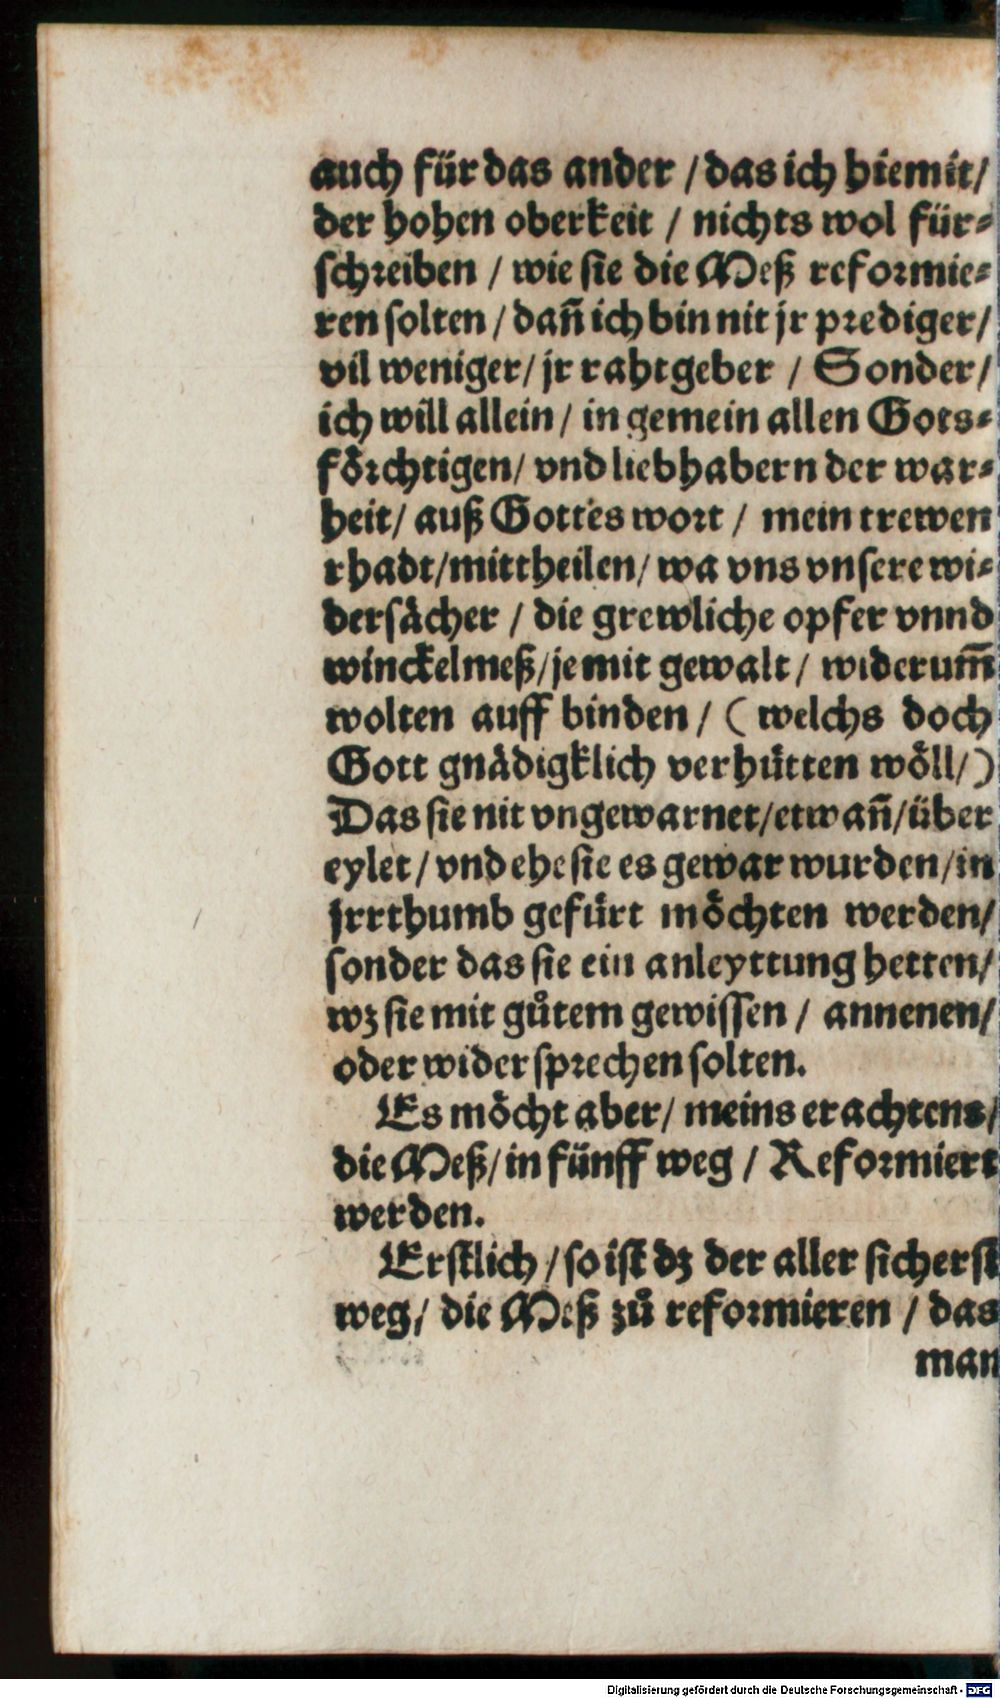 auch für das ander / das ich hiemit /
der hohen oberkeit / nichts wol für⸗
schreiben / wie sie die Meß reformie⸗
ren solten / dañ ich bin nit jr prediger /
vil weniger / jr rahtgeber / Sonder /
ich will allein / in gemein allen Gots⸗
foͤrchtigen / vnd liebhabern der war⸗
heit / auß Gottes wort / mein trewen
rhadt / mittheilen / wa vns vnsere wi⸗
dersaͤcher / die grewliche opfer vnnd
winckelmeß / je mit gewalt / widerum̃
wolten auff binden / ( welchs doch
Gott gnaͤdigklich verhuͤtten woͤll / )
Das sie nit vngewarnet / etwañ / über
eylet / vnd ehe sie es gewar wurden / in
jrrthumb gefuͤrt moͤchten werden /
sonder das sie ein anleyttung hetten /
wz sie mit guͦtem gewissen / annenen /
oder widersprechen solten.
Es moͤcht aber / meins erachtens /
die Meß / in fünff weg / Reformiert
werden.
Erstlich / so ist dz der aller sicherst
weg / die Meß zuͦ reformieren / das
man
Digitalisierung gefördert durch die Deutsche Forschungsgemeinschaft - DFG